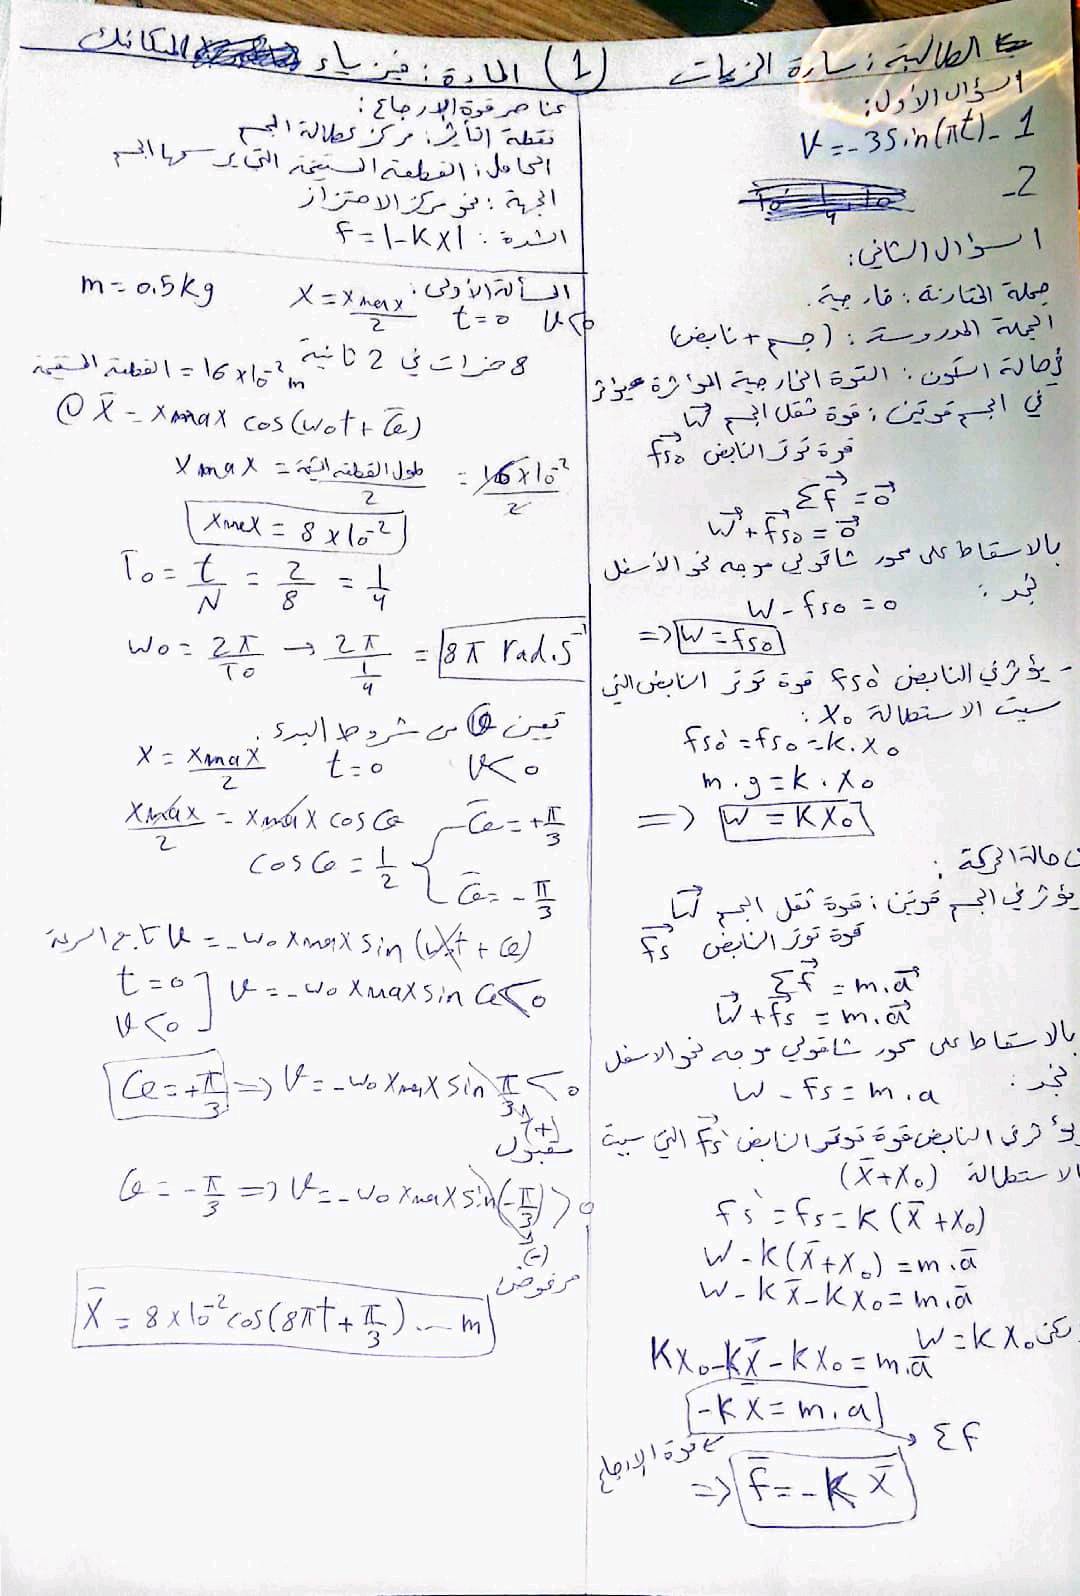 الطالبة: سارة الزيات (1) المادة: فيزياء الميكانيك
السؤال الأول:
1- V = -3 sin(πt)
2-
السؤال الثاني:
جملة المقارنة: خارجية.
الجملة المدروسة: (جسم + نابض)
في حالة السكون: القوة الخارجية المؤثرة يؤثر
في الجسم قوتين: قوة ثقل الجسم W⃗
قوة توتر النابض fs₀⃗
Σf⃗ = 0⃗
W⃗ + fs₀⃗ = 0⃗
بالاسقاط على محور شاقولي موجه نحو الأسفل
نجد:
W - fs₀ = 0
=> W = fs₀
- يؤثر في النابض fs₀' قوة توتر النابض التي
سببت الاستطالة x₀:
fs₀' = fs₀ = k . x₀
m . g = k . x₀
=> W = k x₀
حالة الحركة:
يؤثر في الجسم قوتين: قوة ثقل الجسم W⃗
قوة توتر النابض fs⃗
Σf⃗ = m . a⃗
W⃗ + fs⃗ = m . a⃗
بالاسقاط على محور شاقولي موجه نحو الاسفل
نجد:
W - fs = m . a
يؤثر في النابض قوة توتر النابض fs'⃗ التي سببت
الاستطالة (x̄ + x₀)
fs' = fs = k (x̄ + x₀)
W - k(x̄ + x₀) = m . ā
W - k x̄ - k x₀ = m . ā
لكن W = k x₀
k x₀ - k x̄ - k x₀ = m . ā
-k x̄ = m . a
Σf
قوة الارجاع
=> f̄ = -k x̄
عناصر قوة الإرجاع:
نقطة التأثير: مركز عطالة الجسم
الحامل: القطعة المستقيمة التي يرسمها الجسم
الجهة: نحو مركز الاهتزاز
الشدة: f = |-k x|
المسألة الأولى: x = xmax/2 t = 0 v < 0 m = 0.5 kg
8 هزات في 2 ثانية
القطعة المستقيمة = 16 × 10⁻² m
① x̄ = xmax cos(ω₀t + φ̄)
xmax = طول القطعة المستقيمة/2 = 16 × 10⁻²/2
xmax = 8 × 10⁻²
T₀ = t/N = 2/8 = 1/4
ω₀ = 2π/T₀ → 2π/(1/4) = 8π rad.s⁻¹
تعيين φ من شروط البدء.
x = xmax/2 t = 0 v < 0
xmax/2 = xmax cos φ
φ̄ = +π/3
cos φ = 1/2
φ̄ = -π/3
تابع السرعة v = -ω₀ xmax sin (ω₀t + φ)
t = 0
v < 0
v = -ω₀ xmax sin φ < 0
φ = +π/3 => v = -ω₀ xmax sin π/3 < 0
(+)
مقبول
φ = -π/3 => v = -ω₀ xmax sin(-π/3) > 0
(-)
مرفوض
x̄ = 8 × 10⁻² cos(8πt + π/3) ... m